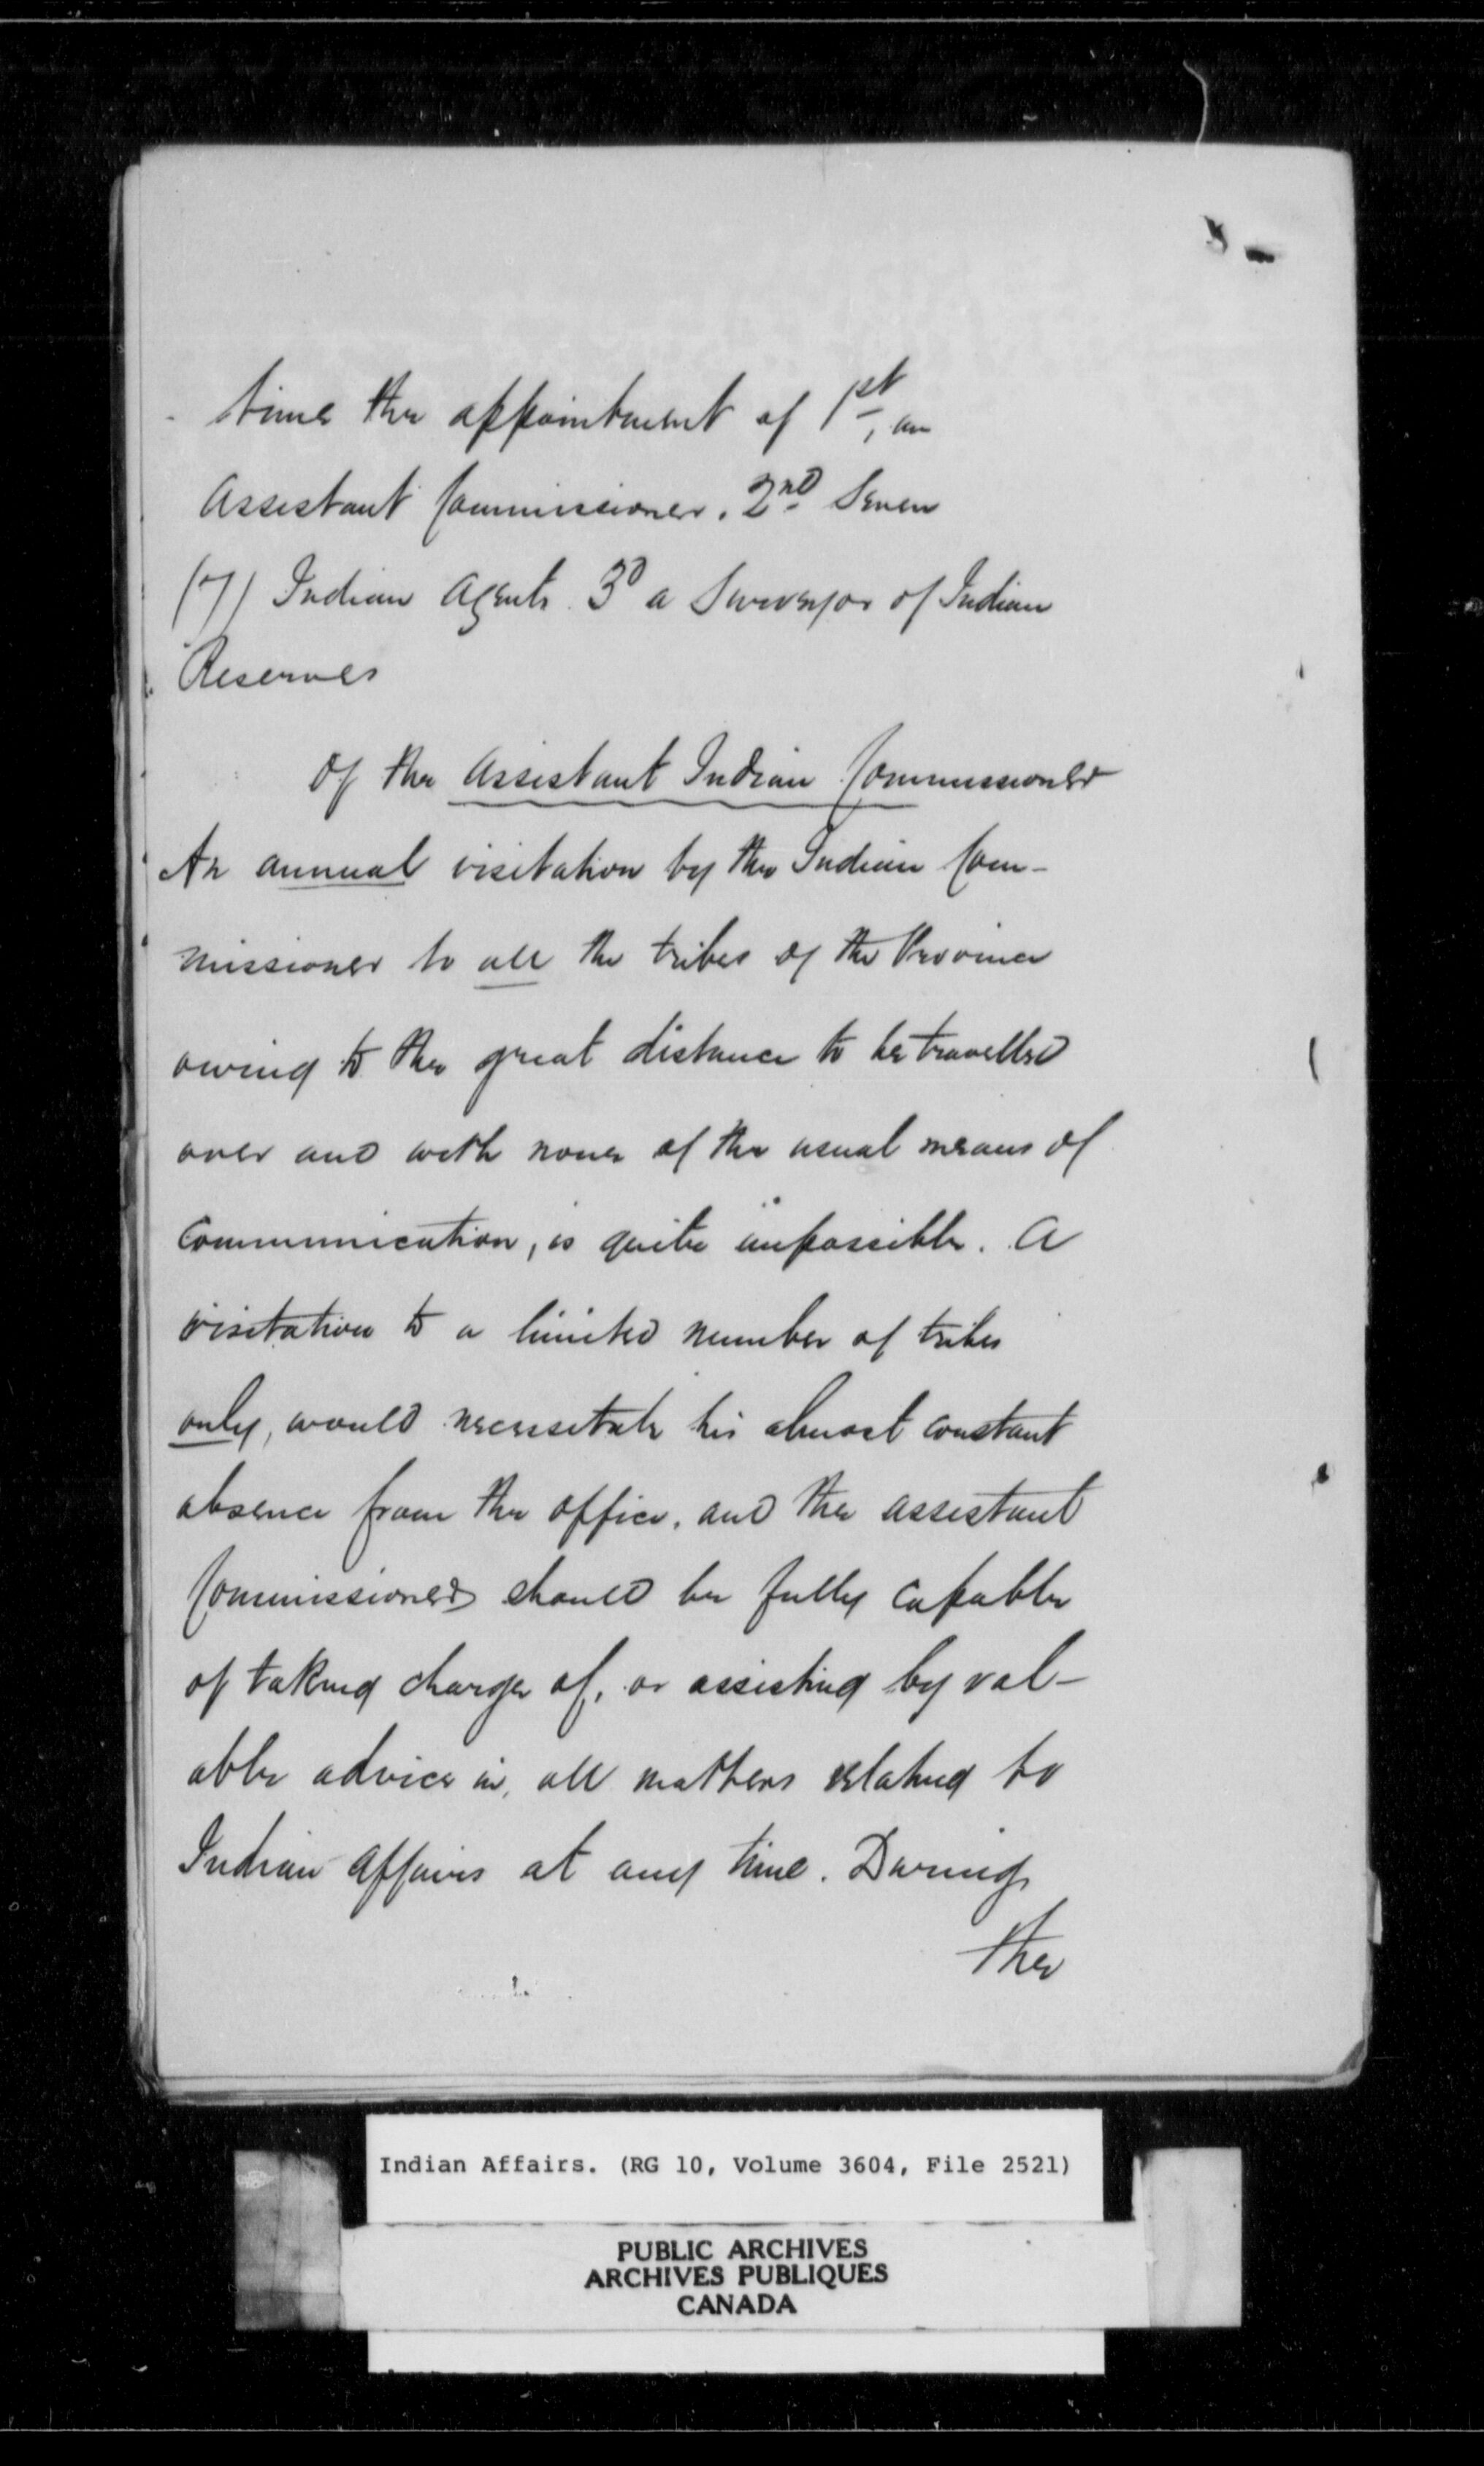 time the appointment of 1st, an
Assistant Commissioner. 2nd Seven
(7) Indian Agents. 3d a Surveyor of Indian
Reserves
Of the Assistant Indian Commissioner
An annual visitation by the Indian Com-
missioner to all the tribes of the Province
owing to the great distance to be travelled
over and with none of the usual means of
communication, is quite impossible. A
visitation to a limited number of tribes
only, would necessitate his almost constant
absence from the office, and the assistant
Commissioner should be fully capable
of taking charge of, or assisting by val-
able advice in, all matters relating to
Indian affairs at any time. During
the
Indian Affairs. (RG 10, Volume 3604, File 2521)
PUBLIC ARCHIVES
ARCHIVES PUBLIQUES
CANADA